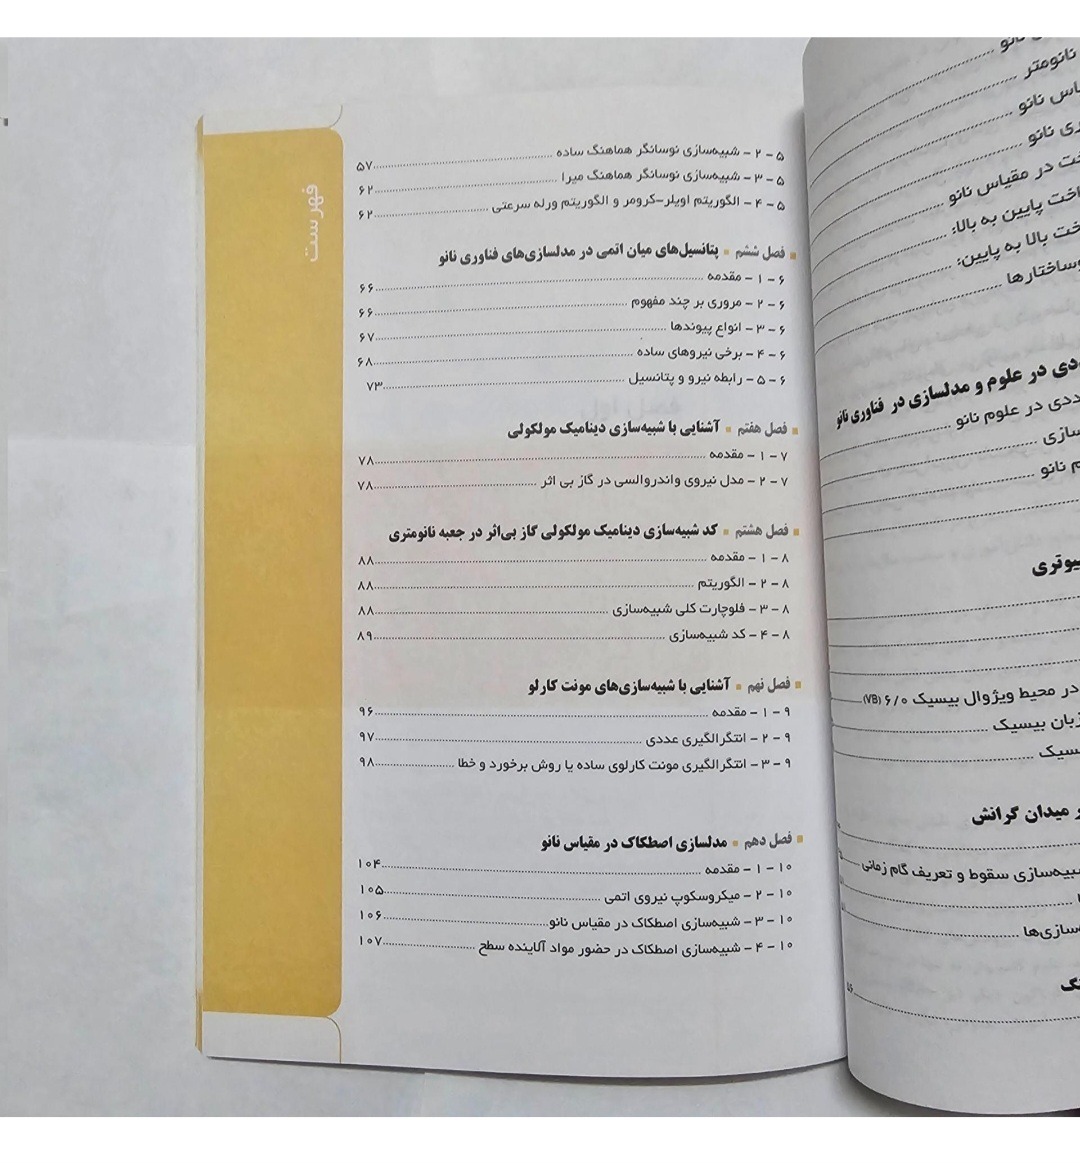 فهرست
۵ – ۲ – شبیه‌سازی نوسانگر هماهنگ ساده ........ ۵۷
۵ – ۳ – شبیه‌سازی نوسانگر هماهنگ میرا ........ ۶۲
۵ – ۴ – الگوریتم اویلر-کرومر و الگوریتم ورله سرعتی ........ ۶۲
فصل ششم ▪ پتانسیل‌های میان اتمی در مدلسازی‌های فناوری نانو
۶ – ۱ – مقدمه ........ ۶۶
۶ – ۲ – مروری بر چند مفهوم ........ ۶۶
۶ – ۳ – انواع پیوندها ........ ۶۷
۶ – ۴ – برخی نیروهای ساده ........ ۶۸
۶ – ۵ – رابطه نیرو و پتانسیل ........ ۷۳
فصل هفتم ▪ آشنایی با شبیه‌سازی دینامیک مولکولی
۷ – ۱ – مقدمه ........ ۷۸
۷ – ۲ – مدل نیروی واندروالسی در گاز بی اثر ........ ۷۸
فصل هشتم ▪ کد شبیه‌سازی دینامیک مولکولی گاز بی‌اثر در جعبه نانومتری
۸ – ۱ – مقدمه ........ ۸۸
۸ – ۲ – الگوریتم ........ ۸۸
۸ – ۳ – فلوچارت کلی شبیه‌سازی ........ ۸۸
۸ – ۴ – کد شبیه‌سازی ........ ۸۹
فصل نهم ▪ آشنایی با شبیه‌سازی‌های مونت کارلو
۹ – ۱ – مقدمه ........ ۹۶
۹ – ۲ – انتگرالگیری عددی ........ ۹۷
۹ – ۳ – انتگرالگیری مونت کارلوی ساده یا روش برخورد و خطا ........ ۹۸
فصل دهم ▪ مدلسازی اصطکاک در مقیاس نانو
۱۰ – ۱ – مقدمه ........ ۱۰۴
۱۰ – ۲ – میکروسکوپ نیروی اتمی ........ ۱۰۵
۱۰ – ۳ – شبیه‌سازی اصطکاک در مقیاس نانو ........ ۱۰۶
۱۰ – ۴ – شبیه‌سازی اصطکاک در حضور مواد آلاینده سطح ........ ۱۰۷
نانو
نانومتر
نانو
نانو
در مقیاس نانو
پایین به بالا:
بالا به پایین:
در علوم و مدلسازی در فناوری نانو
در علوم نانو
نانو
در محیط ویژوال بیسیک ۶/۰ (VB)
زبان بیسیک
میدان گرانش
سقوط و تعریف گام زمانی